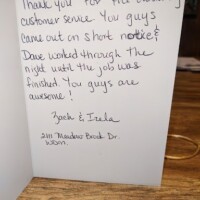 Thank you for the
customer service. You guys
came out on short notice &
Dave worked through the
night until the job was
finished. You guys are
awesome!
Zach &
2111 Meadow Brook Dr.